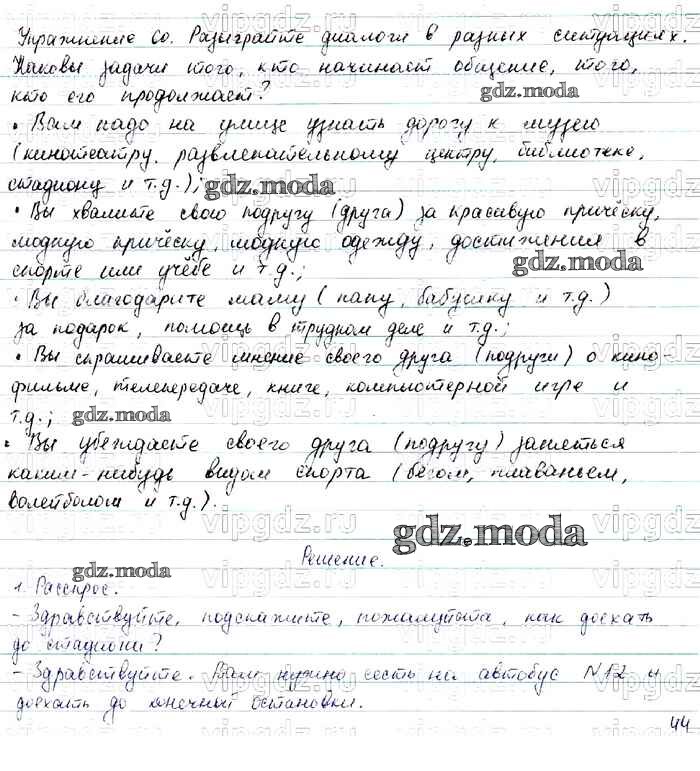 Упражнение 60. Разыграйте диалоги в разных ситуациях.
Каковы задачи того, кто начинает общение, того,
кто его продолжает?
gdz.moda
• Вам надо на улице узнать дорогу к музею
(кинотеатру, развлекательному центру, библиотеке,
стадиону и т.д.);
gdz.moda
• Вы хвалите свою подругу (друга) за красивую причёску,
модную причёску, модную одежду, достижения в
спорте или учёбе и т.д.;
gdz.moda
• Вы благодарите маму (папу, бабушку и т.д.)
за подарок, помощь в трудном деле и т.д.;
• Вы спрашиваете мнение своего друга (подруги) о кино-
фильме, телепередаче, книге, компьютерной игре и
т.д.;
gdz.moda
• Вы убеждаете своего друга (подругу) заняться
каким-нибудь видом спорта (бегом, плаваньем,
волейболом и т.д.).
gdz.moda
Решение.
gdz.moda
1. Расспрос.
- Здравствуйте, подскажите, пожалуйста, как доехать
до стадиона?
- Здравствуйте. Вам нужно сесть на автобус №12 и
доехать до конечной остановки.
44
vipgdz.ru